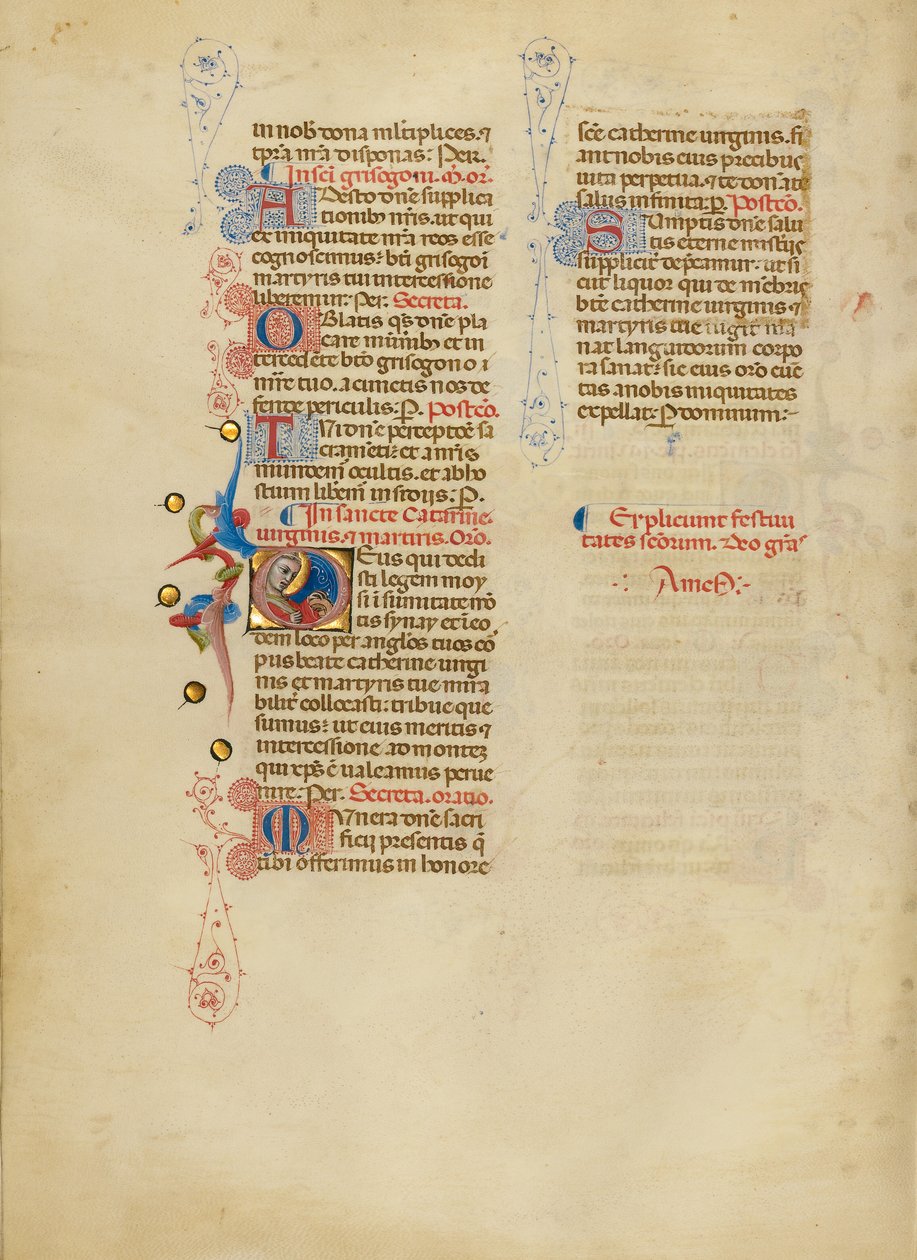 in nob̄ dona mĺtiplices. ⁊
tp̄ra nr̄a disponas: Per.
In sc̄i grisogoni. m̄. or̄.
Adesto dn̄e supplica
tionib nr̄is. ut qui
ex iniquitate nr̄a reos esse
cognoscimus: bt̄i grisogoi
martyris tui intercessione
liberemur: Per. Secreta.
Oblatis q̄s dn̄e pla
care mun̄ib et in
tercedēte bt̄o grisogono
mr̄e tuo. a cunctis nos de
fende periculis: P. Postcō.
Tui dn̄e perceptōe sa
cramēti: et a nr̄is
mundem̄ ocultis. et ab ho
stium liberem̄ insidijs: P.
In sancte Catarine.
uirginis. ⁊ martiris. Orō.
Deus qui dedi
sti legem moy
si ī sumitate mō
tis synay et ī eo
dem loco per angl̄os tuos cō
pus beate catherine uirgi
nis et martyris tue mira
bilit̄ collocasti: tribue que
sumus: ut eius meritis ⁊
intercessione. ad montez
qui xp̄s ē ualeamus perue
nire: Per. Secreta. oratio.
Munera dn̄e sacri
ficij presentis q̄
tibi offerimus in honore
sc̄e catherine uirginis. fi
ant nobis eius precibus
uita perpetua. ⁊ te donāte
salus infinita: P. Postcō.
Sumptis dn̄e salu
tis eterne mist̄ijs
supplicit̄ dep̄camur: ut si
cut liquor qui de mēbris
bt̄e catherine uirginis ⁊
martyris tue iugit̄ ma
nat languidorum corpo
ra sanat: sic eius orō cūc
tas a nobis iniquitates
expellat: P dominum:-
Explicunt festiui
tates sc̄orum. Deo gr̄a
·: Amen :-